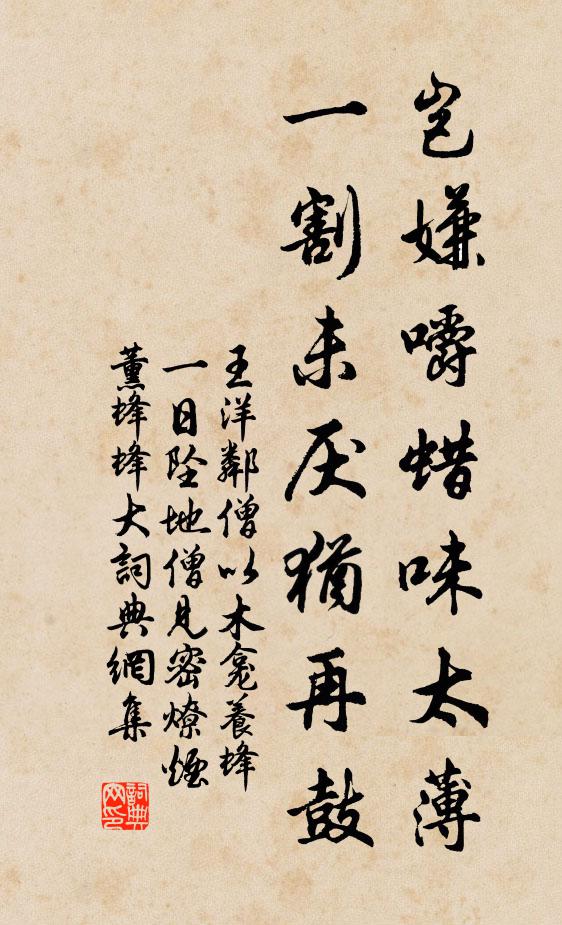 岂嫌嚼蜡味太薄
一割未厌犹再鼓
王洋鄰僧以木龛養蜂
一日坠地僧見密燎煙
薰蜂蜂大詞典網集
詞典
网印